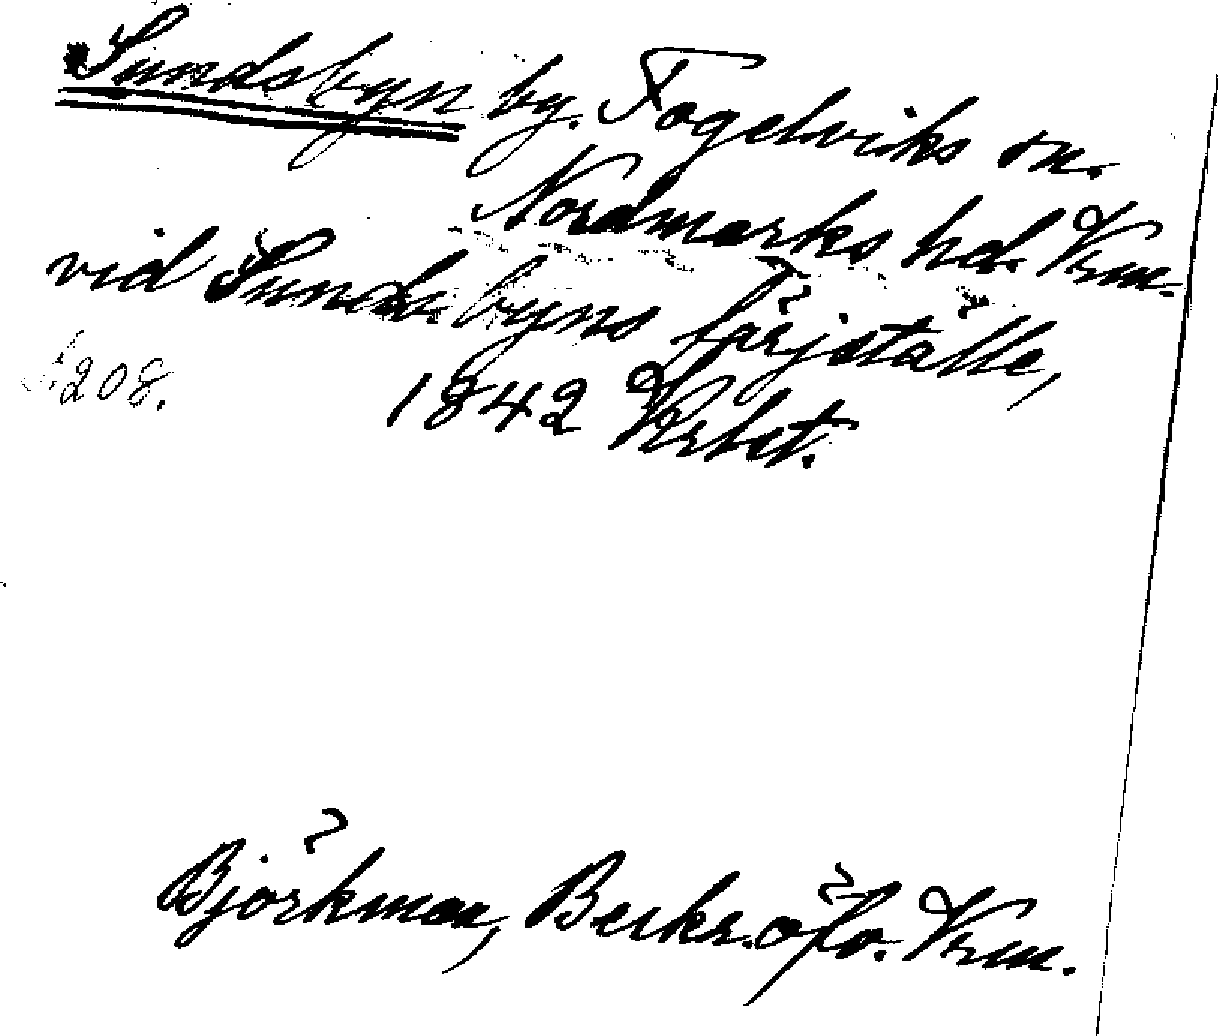 Sundsbyn by. Fogelviks sn.
Nordmarks hd. Vrm.
vid Sundsbyns färjställe,
1842 Vrbet.
208.
Björkman, Beskr. öfv. Vrm.